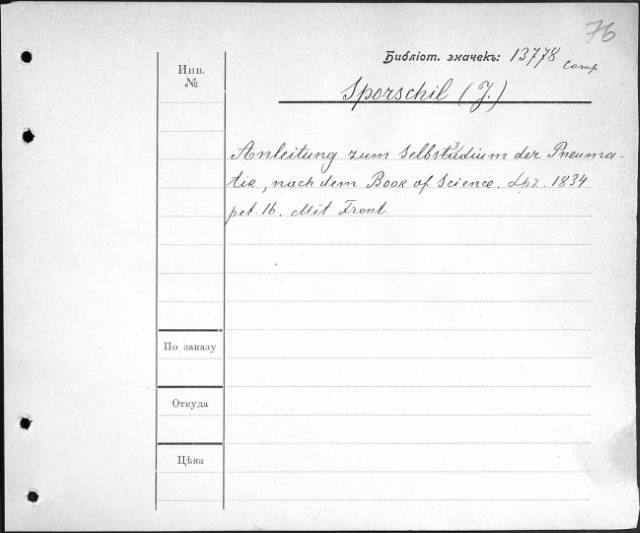 76
Библіот. значекъ: 13778
Comp
Инв.
№
Sporschil (J.)
Anleitung zum Selbststudium der Pneuma-
tik, nach dem Book of Science. Lpz. 1834
pet. 16. Mit Front
По заказу
Откуда
Цѣна